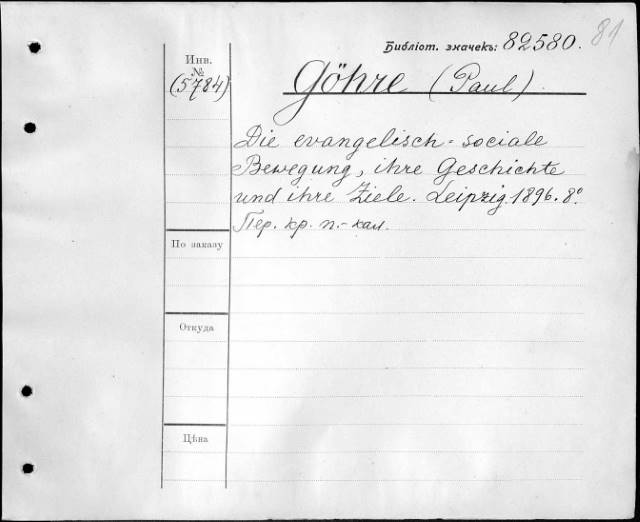 Библіот. значекъ: 82580. 81
Инв.
№
(5784)
Göhre (Paul)
Die evangelisch-sociale
Bewegung, ihre Geschichte
und ihre Ziele. Leipzig. 1896. 8º.
Пер. кр. п.-кал.
По заказу
Откуда
Цѣна